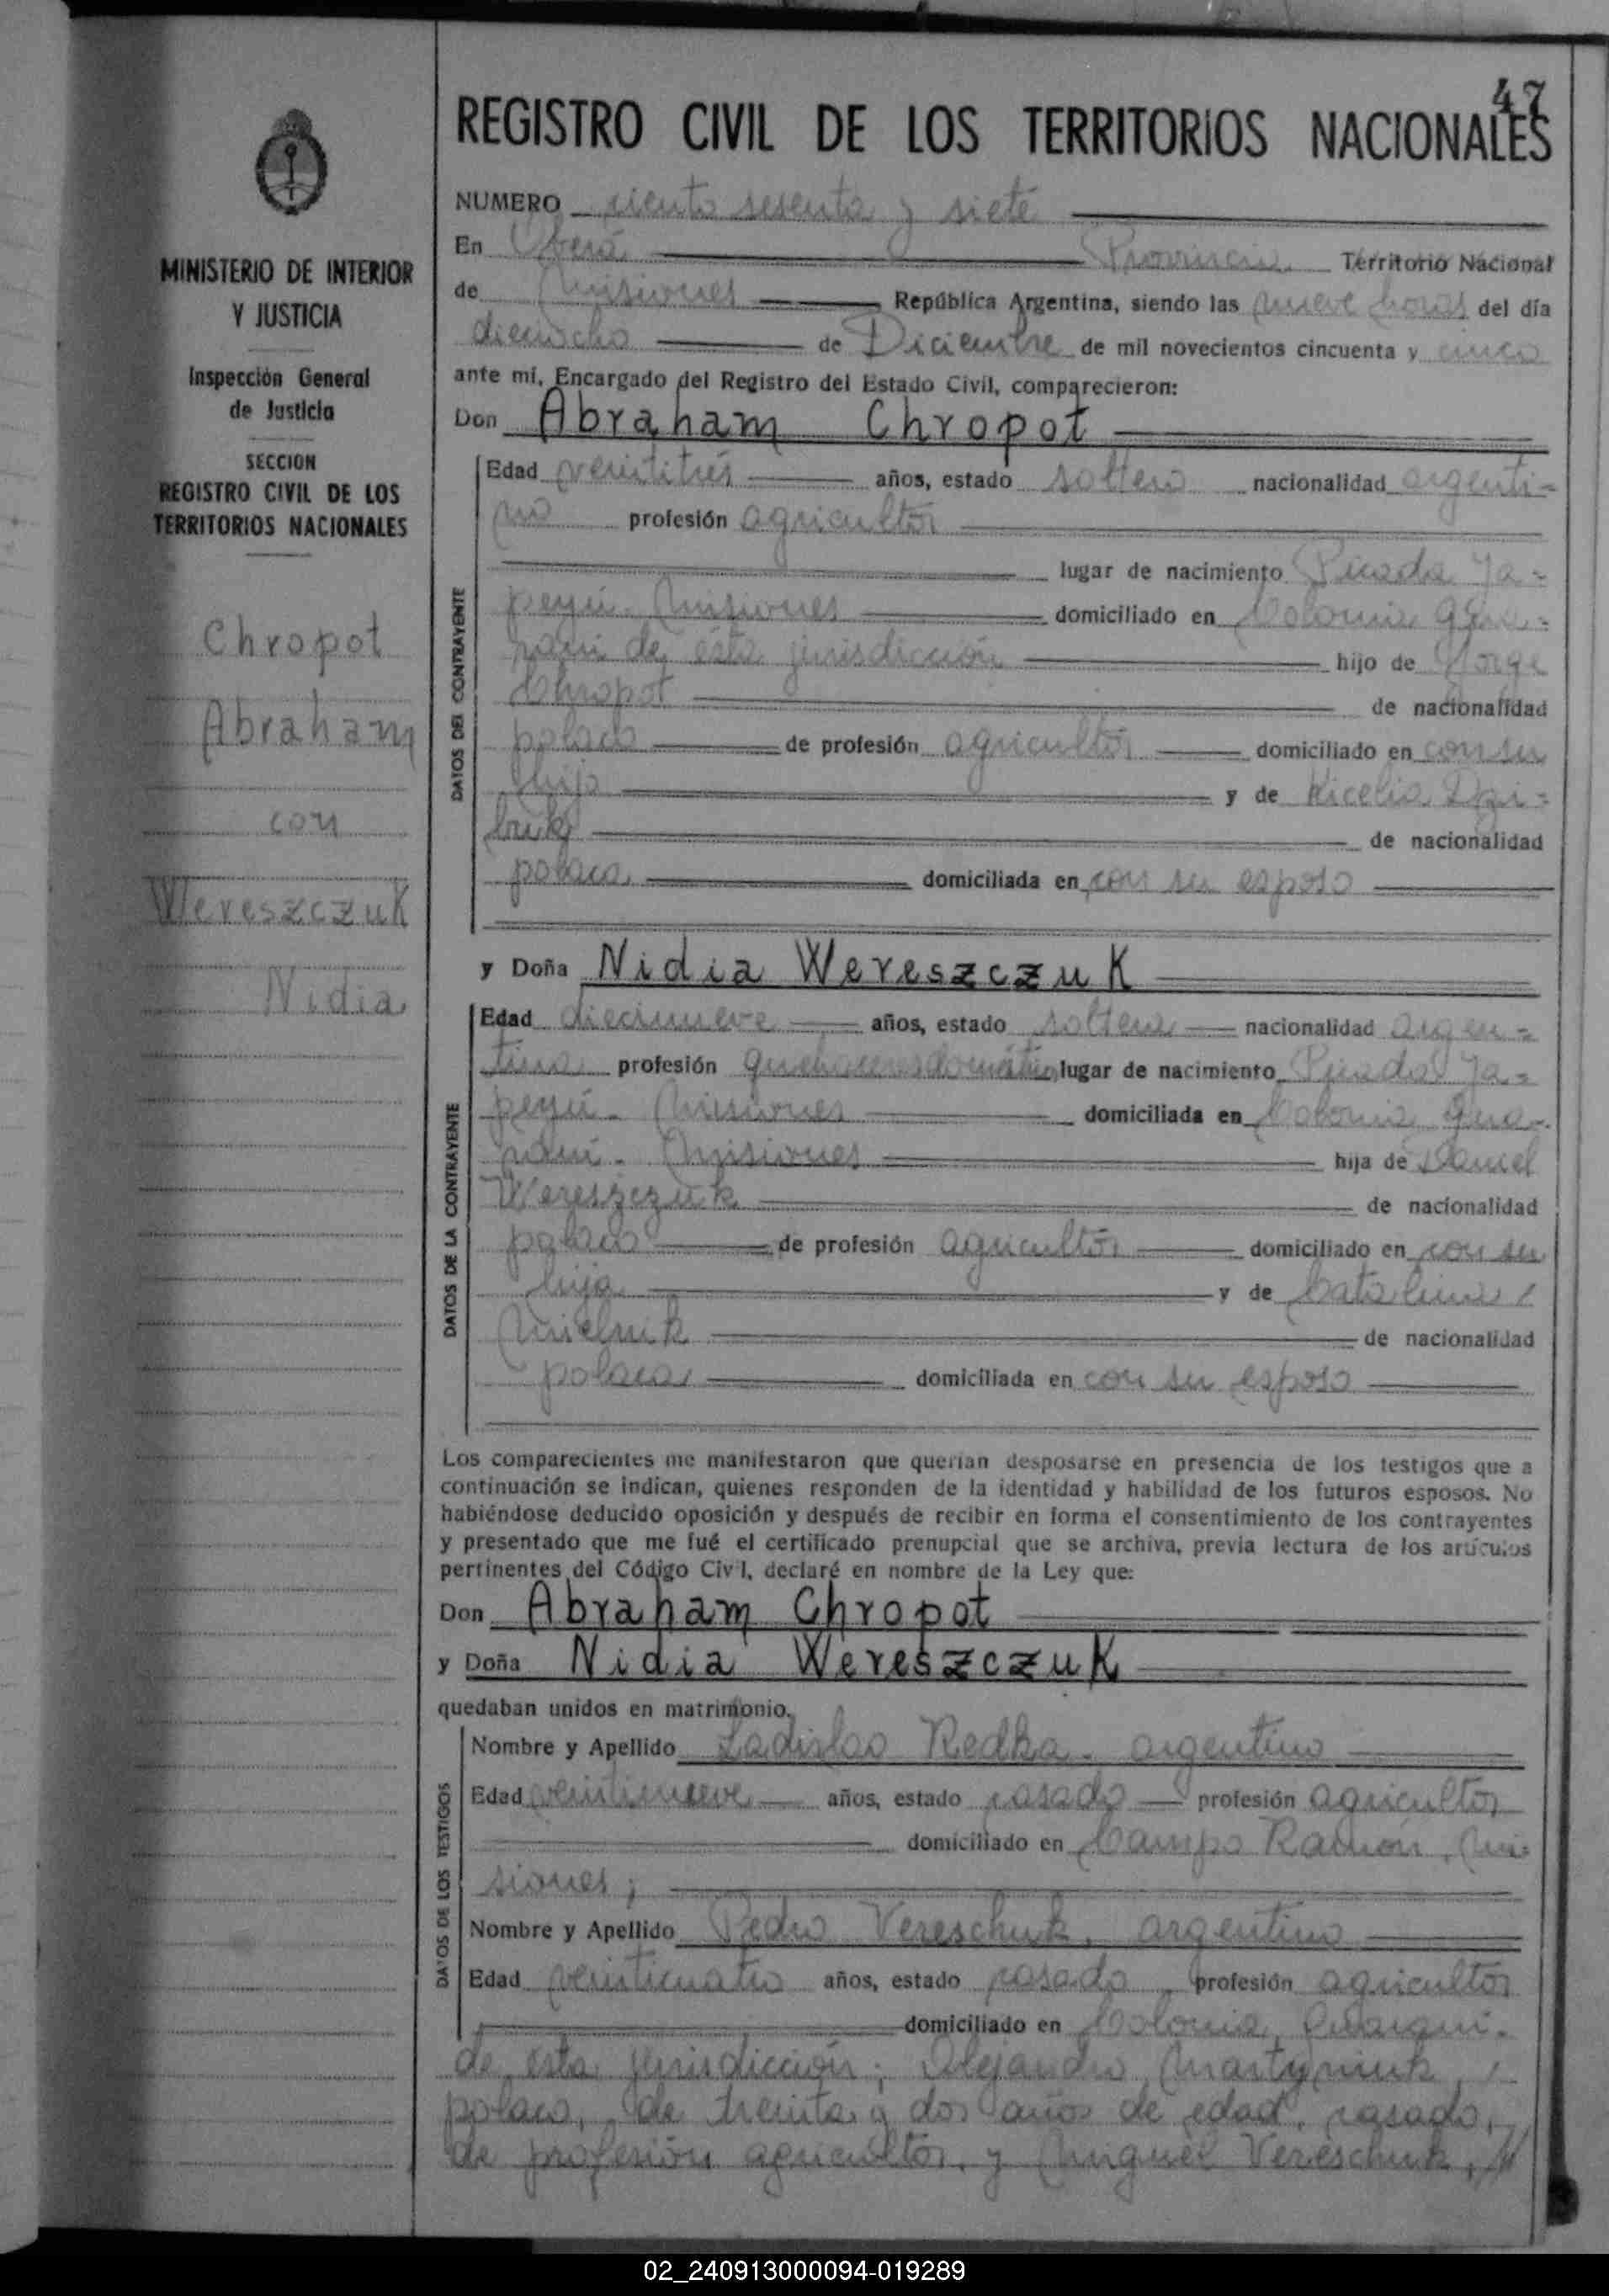 47
REGISTRO CIVIL DE LOS TERRITORIOS NACIONALES
MINISTERIO DE INTERIOR
Y JUSTICIA
Inspección General
de Justicia
SECCION
REGISTRO CIVIL DE LOS
TERRITORIOS NACIONALES
Chropot
Abraham
con
Wereszczuk
Nidia
NUMERO ciento sesenta y siete
En Oberá Provincia Territorio Nacional
de Misiones República Argentina, siendo las nueve horas del día
dieciocho de Diciembre de mil novecientos cincuenta y cinco
ante mí, Encargado del Registro del Estado Civil, comparecieron:
Don Abraham Chropot
DATOS DEL CONTRAYENTE
Edad veintitrés años, estado soltero nacionalidad argenti=
no profesión agricultor
lugar de nacimiento Picada Ya=
peyú - Misiones domiciliado en Colonia Gua=
raní de ésta jurisdicción hijo de Jorge
Chropot de nacionalidad
polaco de profesión agricultor domiciliado en con su
hijo y de Kicelia Dzi=
buk de nacionalidad
polaca domiciliada en con su esposo
y Doña Nidia Wereszczuk
DATOS DE LA CONTRAYENTE
Edad diecinueve años, estado soltera nacionalidad argen=
tina profesión quehaceres domésticos lugar de nacimiento Picada Ya=
peyú - Misiones domiciliada en Colonia Gua-
raní - Misiones hija de Daniel
Wereszczuk de nacionalidad
polaco de profesión agricultor domiciliado en con su
hija y de Catalina /
Mielnik de nacionalidad
polaca domiciliada en con su esposo
Los comparecientes me manifestaron que querían desposarse en presencia de los testigos que a
continuación se indican, quienes responden de la identidad y habilidad de los futuros esposos. No
habiéndose deducido oposición y después de recibir en forma el consentimiento de los contrayentes
y presentado que me fué el certificado prenupcial que se archiva, previa lectura de los artículos
pertinentes del Código Civil, declaré en nombre de la Ley que:
Don Abraham Chropot
y Doña Nidia Wereszczuk
quedaban unidos en matrimonio.
DATOS DE LOS TESTIGOS
Nombre y Apellido Ladislao Redka - argentino
Edad veintinueve años, estado casado profesión agricultor
domiciliado en Campo Ramón, Mi-
siones;
Nombre y Apellido Pedro Vereschuk, argentino
Edad veinticuatro años, estado casado, profesión agricultor
domiciliado en Colonia Guaraní -
de esta jurisdicción; Alejandro Martyniuk, /
polaco, de treinta y dos años de edad, casado,
de profesión agricultor, y Miguel Vereschuk, //
02_240913000094-019289